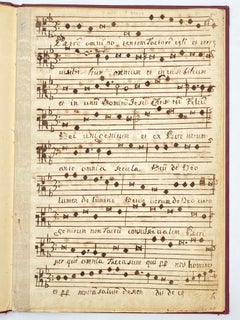 Patrem omnipotentem factorem celi et terre
visibilium omnium et invisibilium
et in unū Dominū Jesū Christū Filiū
Dei unigenitum et ex Patre natum
ante omnia secula Deū de Deo
lumen de lumine Deum verum de Deo vero
Genitum non factū consubstantialem Patri
per quē omnia facta sunt qui ꝓꝑ nos homines
et ꝓꝑ nostrā salutē descendit de ce